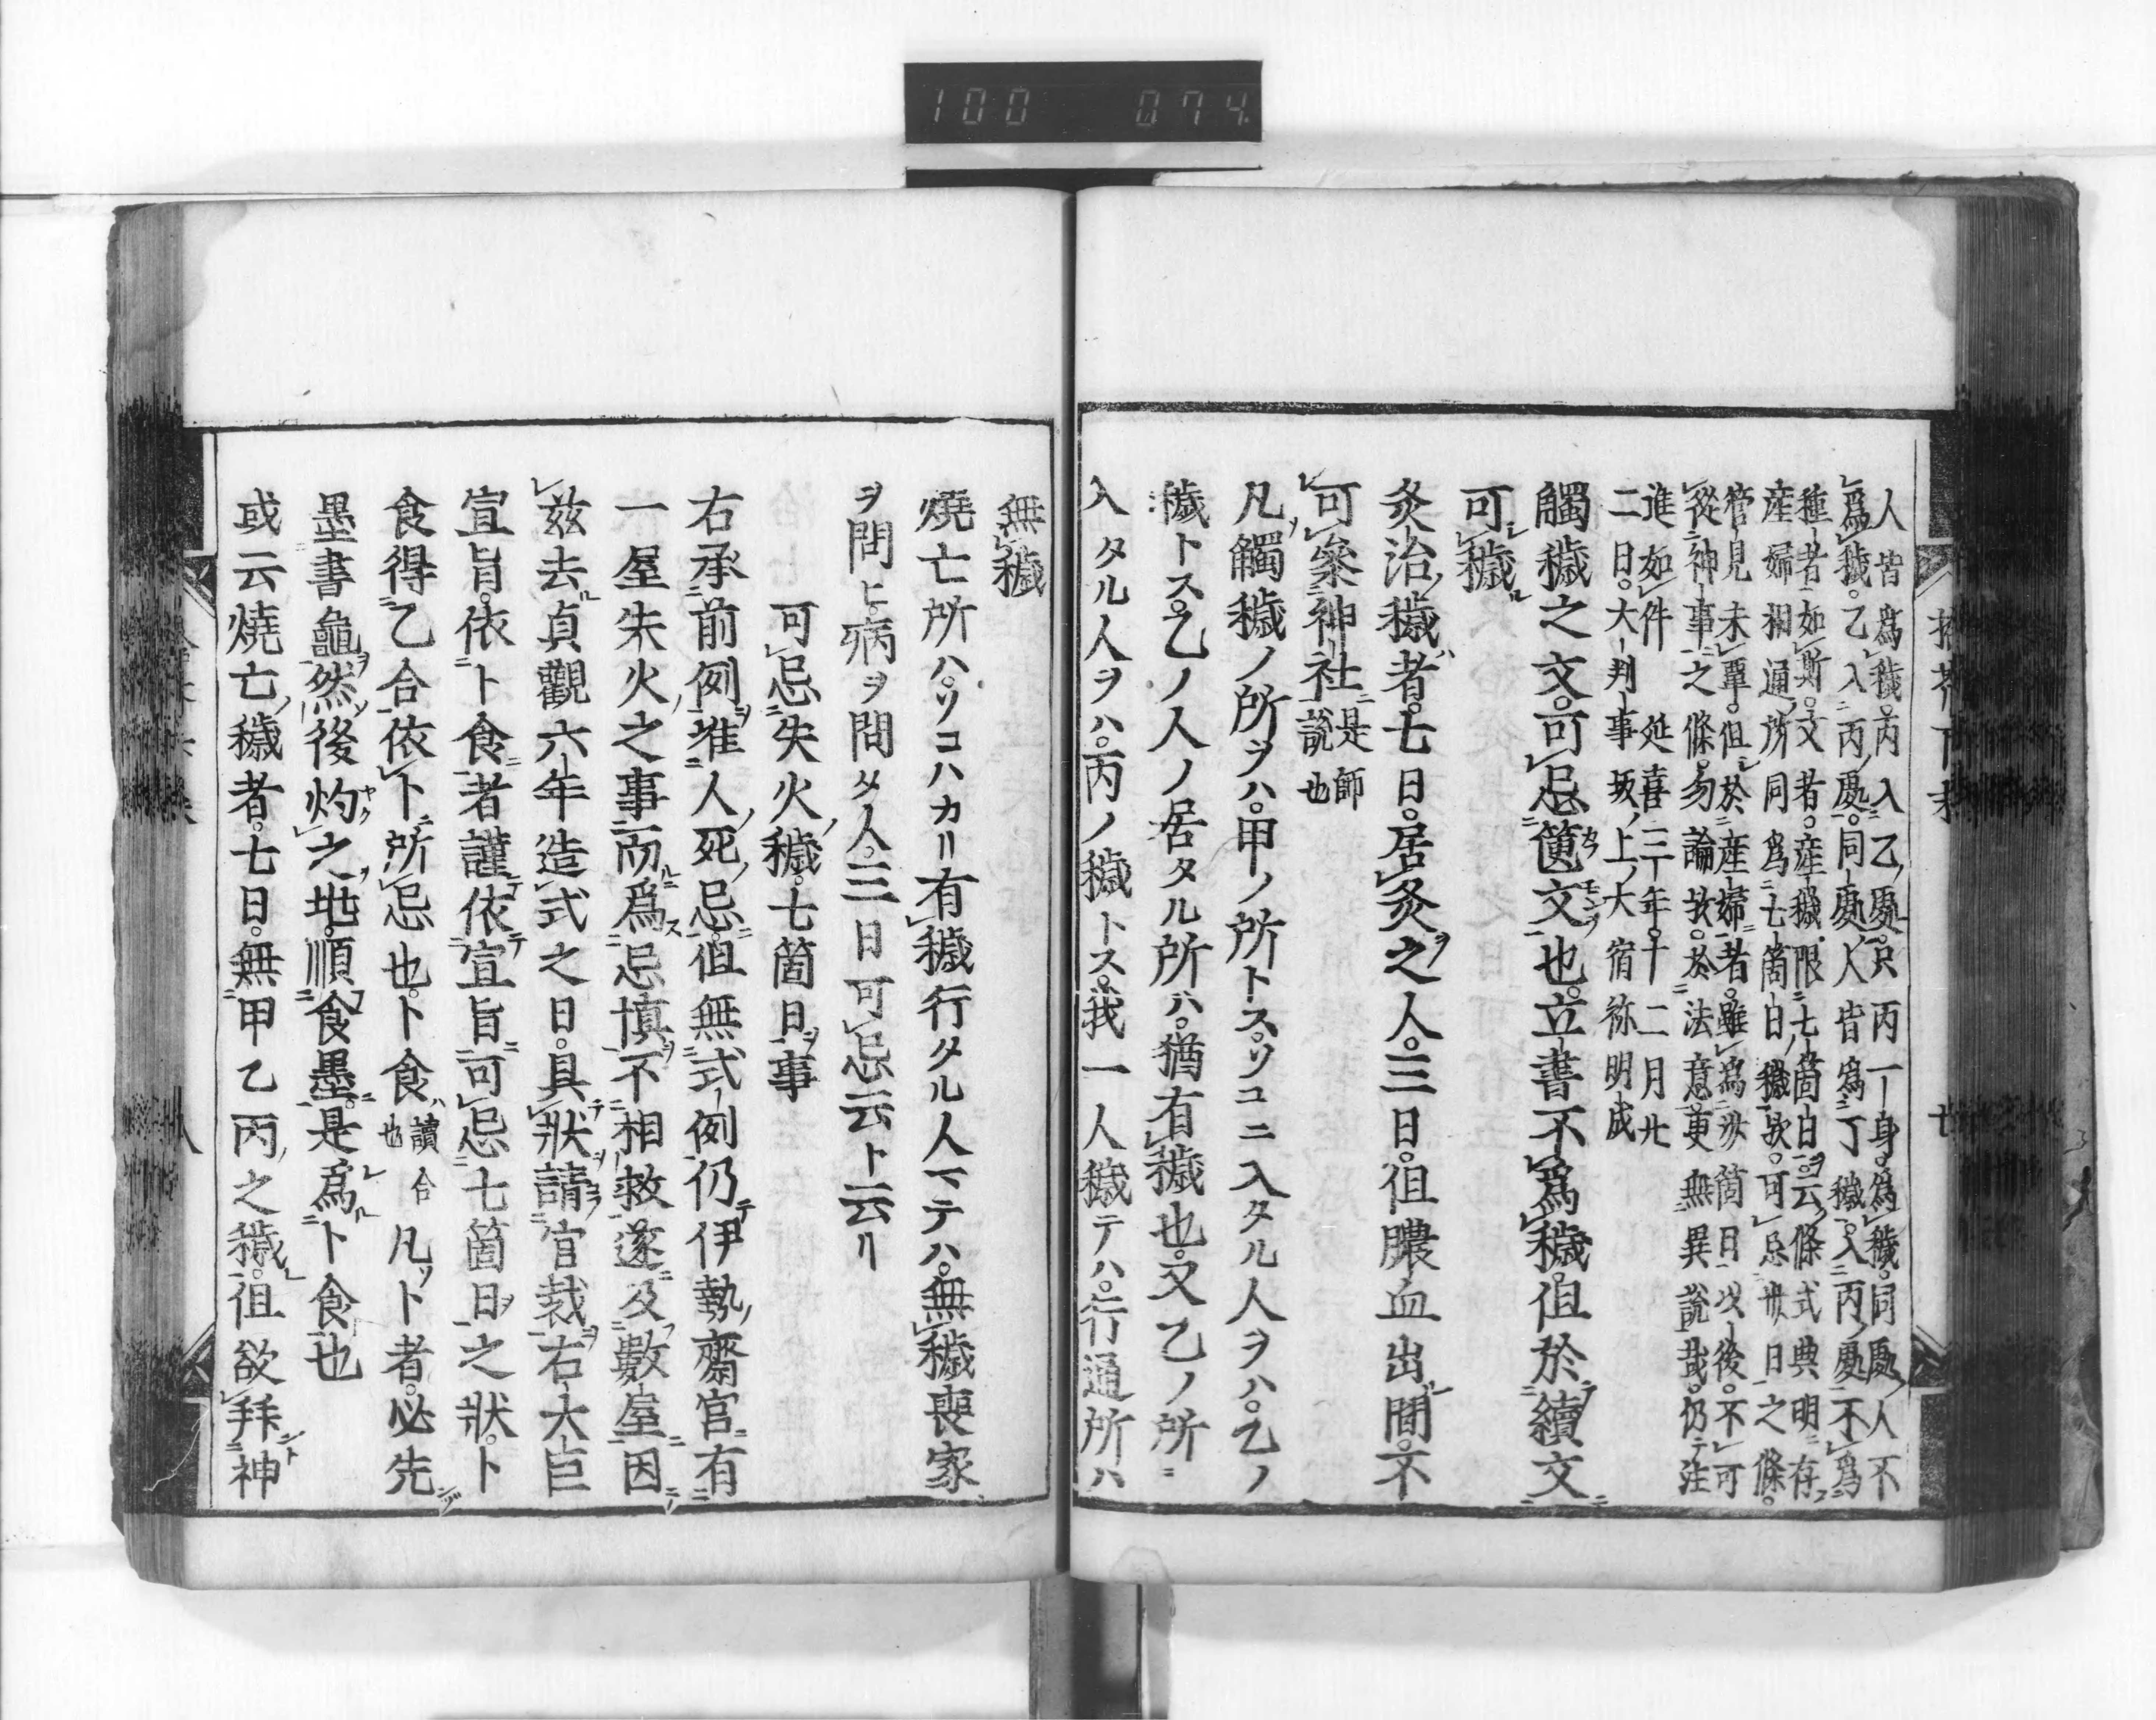 100 074
人皆爲穢。丙入乙處。只丙一身爲穢。同處人不
爲穢。乙入丙處。同處人皆爲穢。丁入丙處不爲
種者如斯。文者。産穢限七箇日。云條式典明存
産婦相通所同爲七箇日穢歟。可忌卅日之條。
管見未覃。但於産婦者。雖爲卅箇日以後。不可
從神事之條。勿論歟。於法意更無異說哉。仍注
進如件 延喜三年十二月廿
二日。大判事坂上大宿祢明成
觸穢之文。可忌篋文也。立書不爲穢。但於續文
可穢
灸治穢者。七日。居灸之人。三日。但膿血出間。不
可參神社是師說也
凡觸穢ノ所ヲハ。甲ノ所トス。ソコニ入タル人ヲハ。乙ノ
穢トス。乙ノ人ノ居タル所ハ。猶有穢也。又乙ノ所ニ
入タル人ヲハ。丙ノ穢トス。我一人穢テハ。行通所ハ
無穢
燒亡所ハ。ソコハカリ有穢行タル人マテハ。無穢喪家
ヲ問ヒ。病ヲ問タ人。三日可忌云ト云リ
可忌失火穢。七箇日事
右承前例。准人死忌。但無式例仍伊勢齋官有
一屋失火之事而爲忌愼不相救遂及數屋因
茲去貞觀六年造式之日。具狀請官裁右大臣
宣旨。依卜食者謹依宣旨可忌七箇日之狀。卜
食得乙合依卜所忌也。卜食讀合也凡卜者。必先
墨書龜然後灼之地順食墨。是爲卜食也
或云燒亡穢者。七日。無甲乙丙之穢。但欲拜神